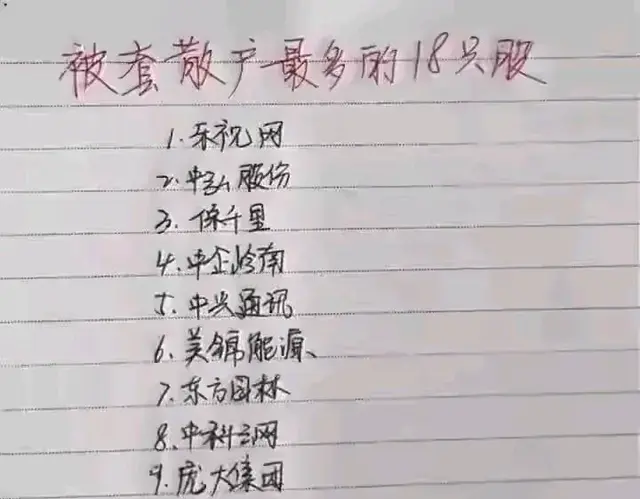 被套散户最多的18只股
1.乐视网
2.中弘股份
3.保千里
4.中企岭南
5.中兴通讯
6.美锦能源、
7.东方园林
8.中科云网
9.庞大集团